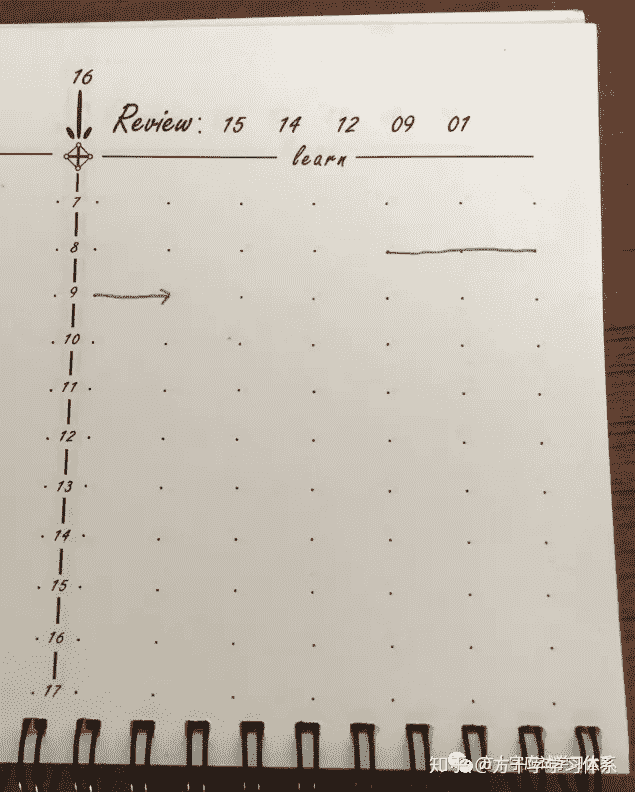 16
Review: 15 14 12 09 01
learn
7
8
9
10
11
12
13
14
15
16
17
知乎 @方千字学习体系